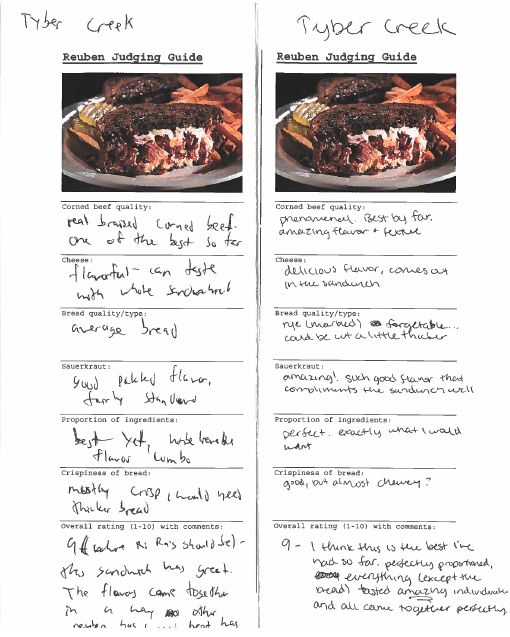 Tyber Creek
Reuben Judging Guide
Corned beef quality:
real braised corned beef.
one of the best so far
Cheese:
flavorful - can taste
with whole sandwich
Bread quality/type:
average bread
Sauerkraut:
good pickled flavor,
fairly standard
Proportion of ingredients:
best yet,
flavor combo
Crispiness of bread:
mostly crisp, would need
thicker bread
Overall rating (1-10) with comments:
9
this sandwich was great.
The flavors came together
in a way no other
reuben has
Tyber Creek
Reuben Judging Guide
Corned beef quality:
phenomenal. Best by far.
amazing flavor + texture
Cheese:
delicious flavor, comes out
in the sandwich
Bread quality/type:
rye (marbled) forgetable...
could be cut a little thicker
Sauerkraut:
amazing! such good flavor that
compliments the sandwich well
Proportion of ingredients:
perfect. exactly what I would
want
Crispiness of bread:
good, but almost chewy?
Overall rating (1-10) with comments:
9 - I think this is the best I've
had so far. perfectly proportioned,
everything (except the
bread) tasted amazing individually
and all came together perfectly.